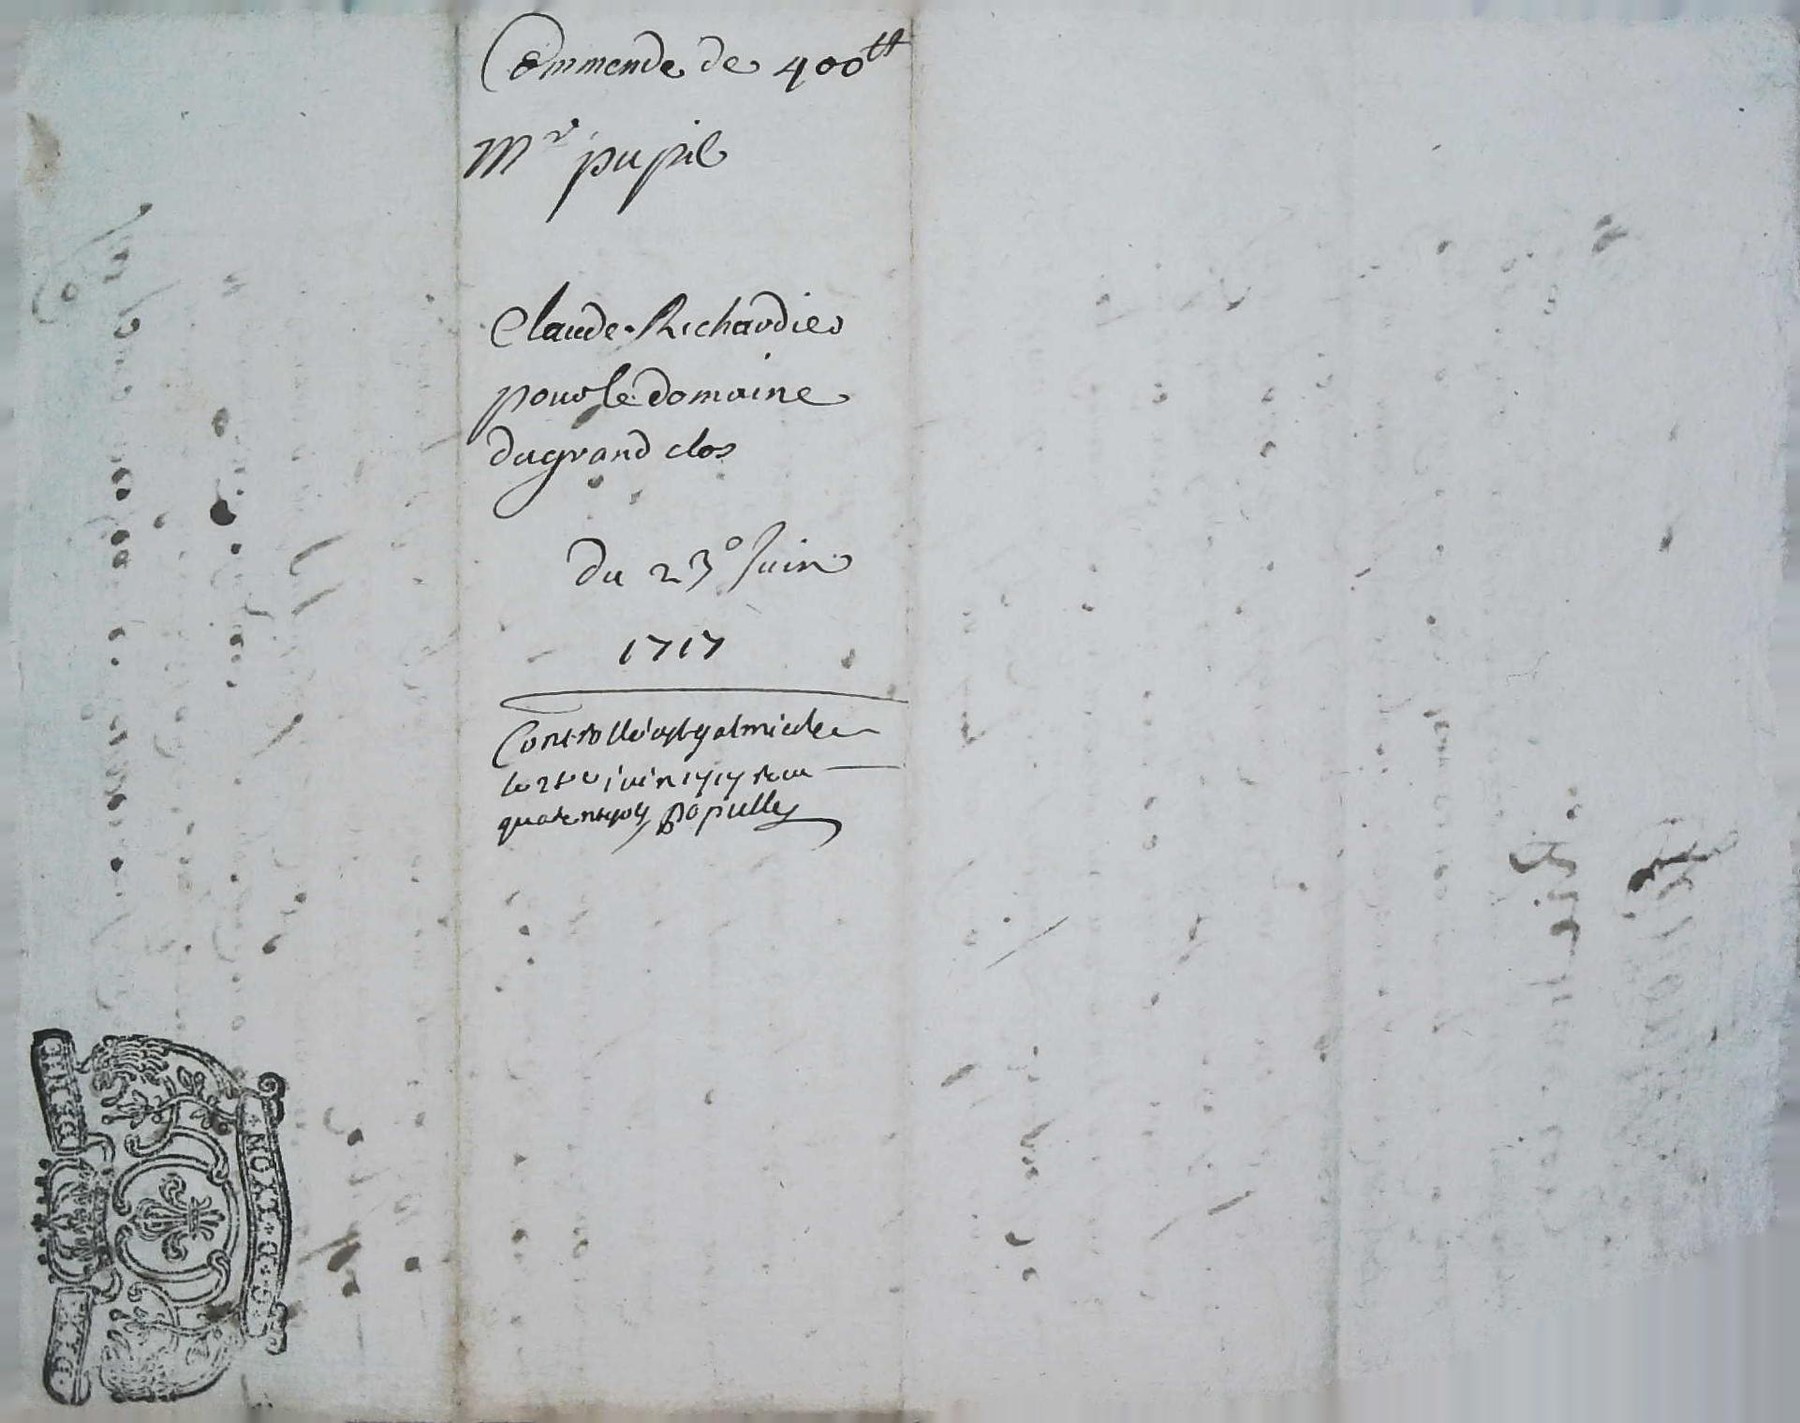 Commende de 400tt
Mr pupil
Claude Richardier
pour le domaine
du grand clos
du 23e Juin
1717
Controllé a st galmier le
le juin 1717 Receu
MOYT D